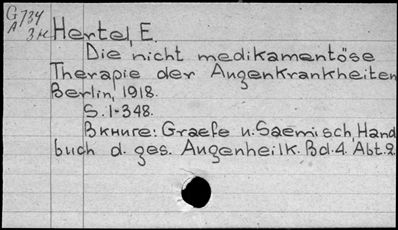 G 734
A 3н
Hertel, E.
Die nicht medikamentöse
Therapie der Augenkrankheiten
Berlin, 1918.
S. 1-348.
В книге: Graefe u. Saemisch, Hand
buch d. ges. Augenheilk. Bd. 4. Abt. 2